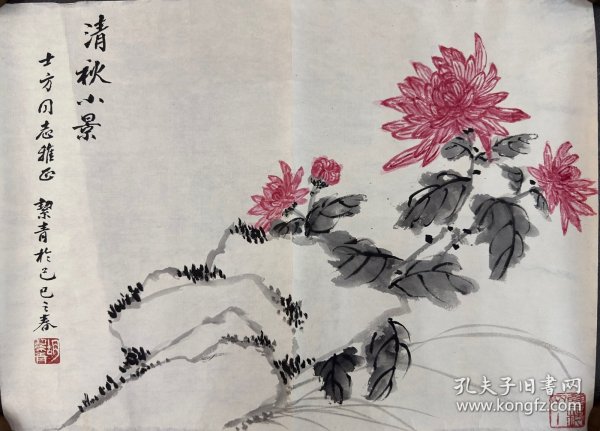 清秋小景
士方同志雅正 絜青於己巳之春
孔夫子旧书网
www.kongfz.com